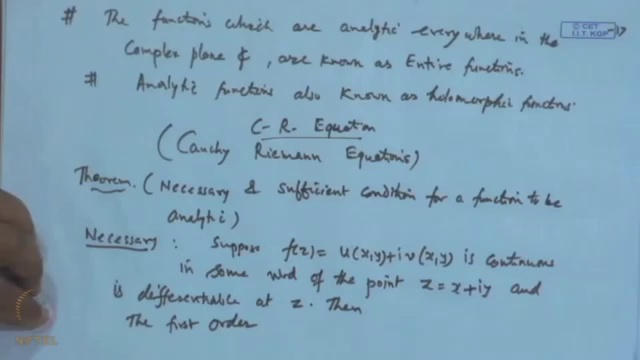 # The functions which are analytic everywhere in the
© CET
I.I.T. KGP
Complex plane ₵, are known as Entire functions.
# Analytic functions also known as holomorphic functions.
C-R. Equation
(Cauchy Riemann Equations)
Theorem. (Necessary & sufficient condition for a function to be
analytic)
Necessary : Suppose f(z) = u(x,y)+iv(x,y) is continuous
in some nbd of the point z = x+iy and
is differentiable at z. Then
The first order
NPTEL